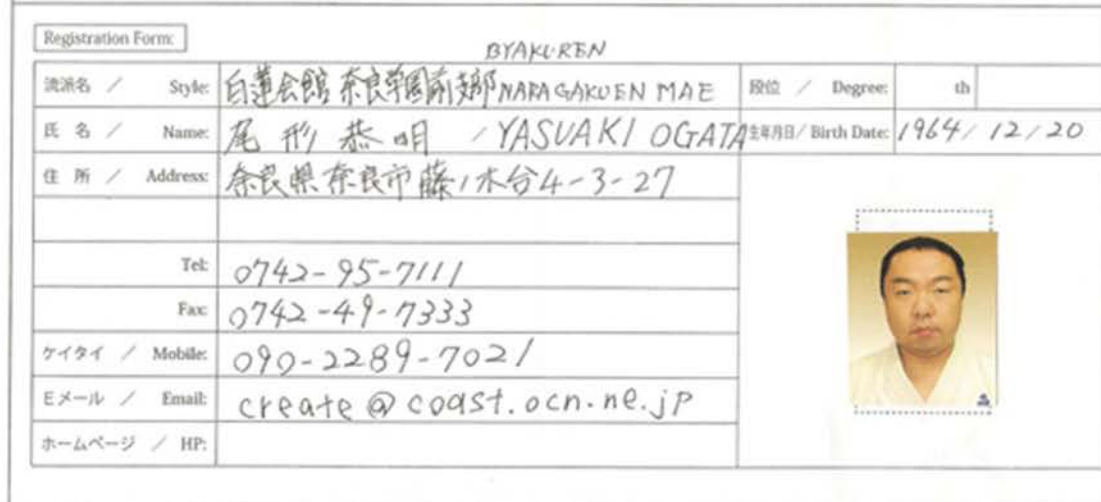 Registration Form:
BYAKUREN
流派名 / Style: 白蓮会館 奈良学園前支部 NARAGAKUEN MAE 段位 / Degree: th
氏 名 / Name: 尾形 恭明 / YASUAKI OGATA 生年月日 / Birth Date: 1964 / 12 / 20
住 所 / Address: 奈良県奈良市藤ノ木台4-3-27
Tel: 0742-95-7111
Fax: 0742-49-7333
ケイタイ / Mobile: 090-2289-7021
Eメール / Email: create@coast.ocn.ne.jp
ホームページ / HP: